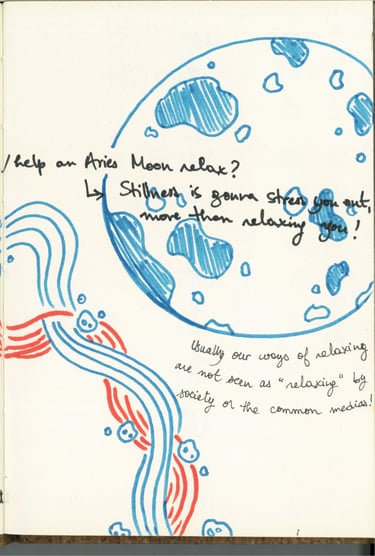 /help an Aries Moon relax?
↳ Stillness is gonna stress you out,
more than relaxing you!
Usually our ways of relaxing
are not seen as "relaxing" by
society or the common medias!